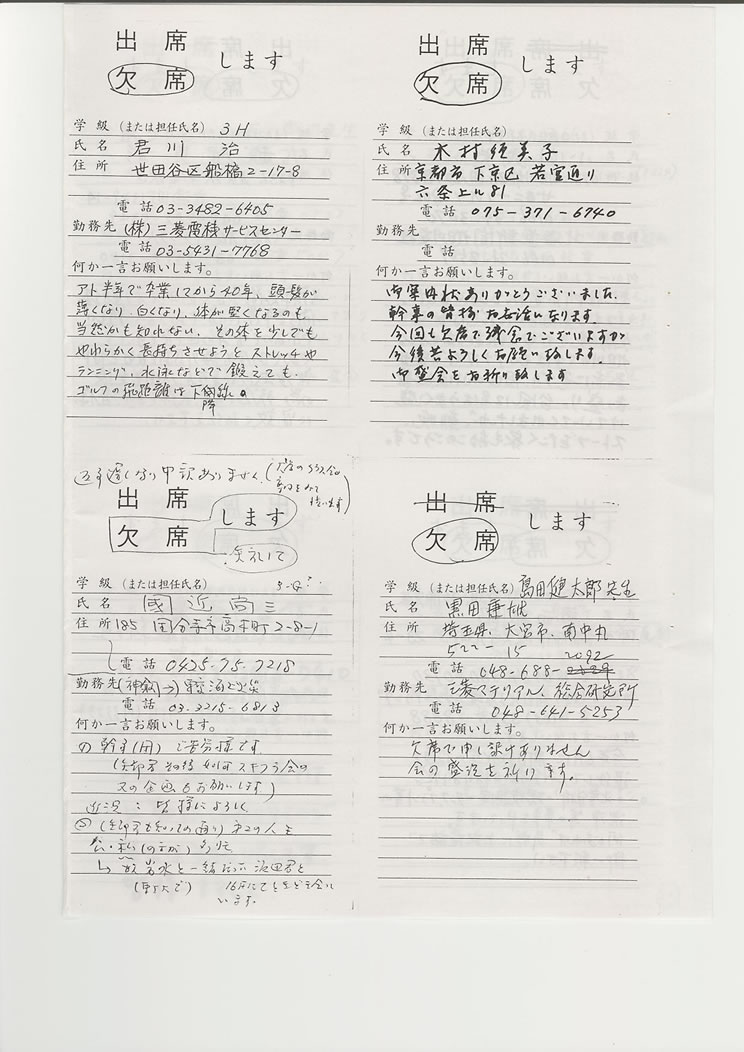 出席
欠席
します
学級（または担任氏名） 3H
氏名 君川 治
住所 世田谷区船橋2-17-8
電話 03-3482-6405
勤務先 (株)三菱電機サービスセンター
電話 03-5431-7768
何か一言お願いします。
アト半年で卒業してから40年、頭髪が
薄くなり、白くなり、体が堅くなるのも
当然かも知れない。その体を少しでも
やわらかく長持ちさせようと ストレッチや
ランニング、水泳などで鍛えても、
ゴルフの飛距離は下降線。
出席
欠席
します
学級（または担任氏名）
氏名 木村 美子
住所 京都市下京区若宮通り
六条上ル81
電話 075-371-6740
勤務先
電話
何か一言お願いします。
御案内状ありがとうございました。
幹事の皆様お世話になります
今回も欠席で残念でございますが
今後共よろしくお願い致します。
御盛会をお祈り致します
返事遅くなり申訳ありません。
出席
欠席
します
失礼して
学級（または担任氏名） 3-G?
氏名 國近 尚三
住所 185 国分寺市高木町2-8-1
電話 0425-75-7218
勤務先
電話 03-3215-6813
何か一言お願いします。
幹事(団) ご苦労様です
又の企画もお願いします)
近況：皆様によろしく
います。
出席
欠席
します
学級（または担任氏名） 島田健太郎先生
氏名 黒田
住所 埼玉県、大宮市、南中丸
522-15
2092
電話 048-688-
勤務先 三菱マテリアル、総合研究所
電話 048-641-5253
何か一言お願いします。
欠席で申し訳けありません
会の盛況を祈ります。